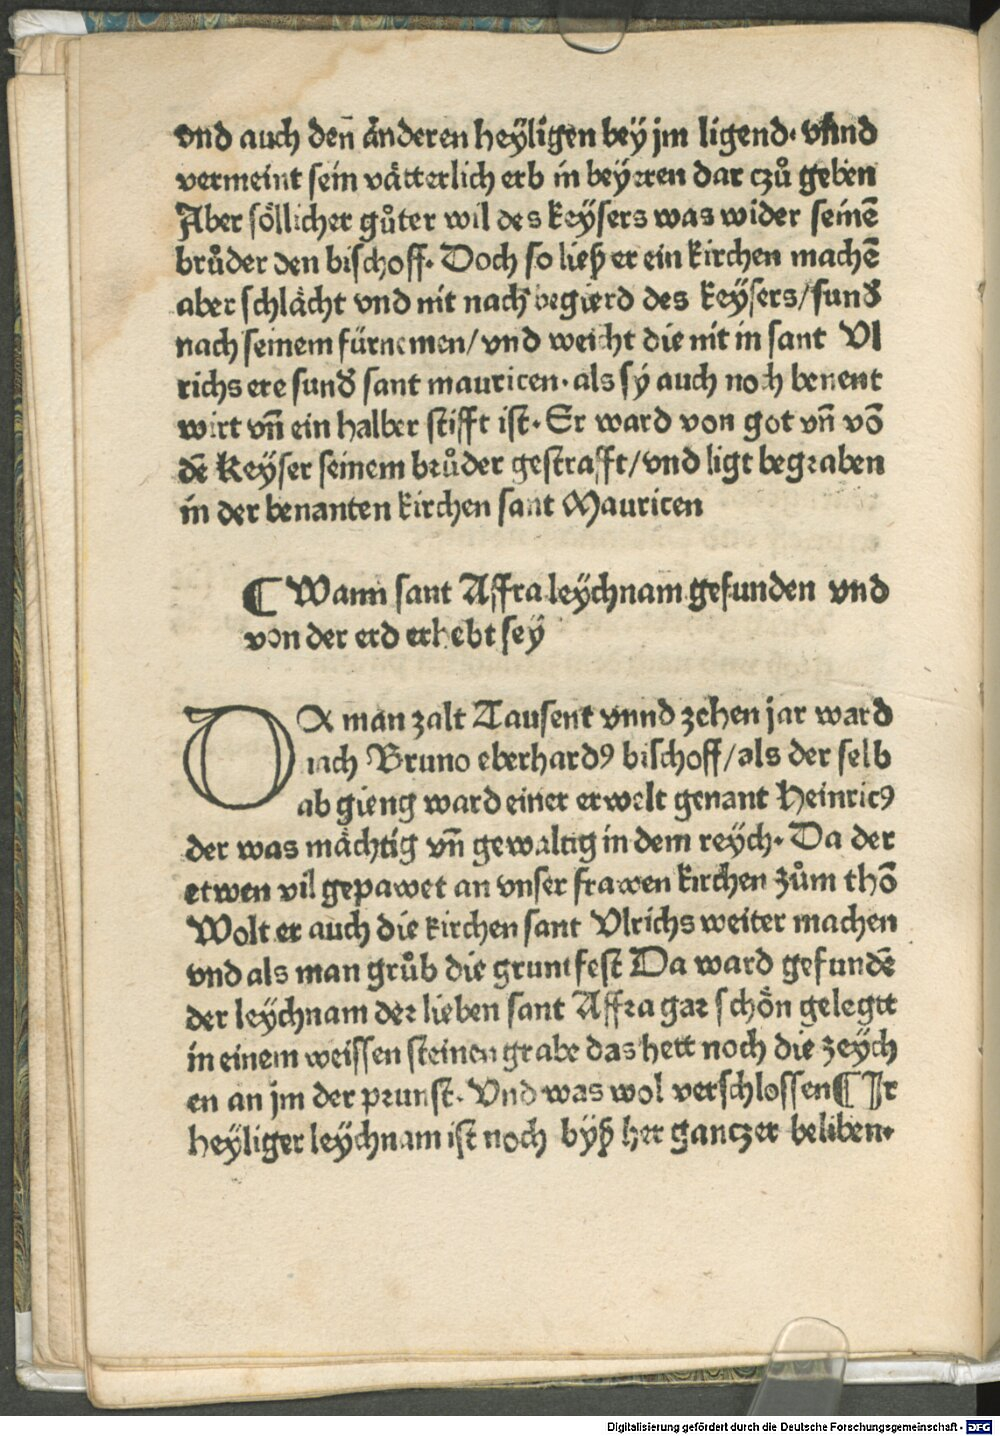 vnd auch den̄ änderen heÿligen beÿ jm ligend· vnnd
vermeint sein vätterlich erb in beÿeren dar czů geben
Aber söllicher gůter wil des keÿsers was wider seinē
brůder den bischoff· Doch so ließ er ein kirchen machē
aber schlächt vnd nit nach begierd des keÿsers/sund̕
nach seinem fürnemen/vnd weicht die nit in sant Vl
richs ere sund̕ sant mauricen· als sÿ auch noch benent
wirt vn̄ ein halber stifft ist· Er ward von got vn̄ vō
dē keÿser seinem brůder gestrafft/vnd ligt begraben
in der benanten kirchen sant Mauricen
¶ Wann sant Affra leÿchnam gefunden vnd
von der erd erhebt seÿ
DA man zalt Tausent vnnd zehen jar ward
nach Bruno eberhardꝰ bischoff/als der selb
ab gieng ward einer erwelt genant Heinricꝰ
der was mächtig vn̄ gewaltig in dem reÿch· Da der
etwen vil gepawet an vnser frawen kirchen zům thō
Wolt er auch die kirchen sant Vlrichs weiter machen
vnd als man grůb die gruntfest Da ward gefundē
der leÿchnam der lieben sant Affra gar schön gelegtt
in einem weissen steinen grabe das hett noch die zeÿch
en an jm der prunst· Vnd was wol verschlossen ¶ Ir
heÿliger leÿchnam ist noch bÿß her ganczer beliben·
Digitalisierung gefördert durch die Deutsche Forschungsgemeinschaft - DFG